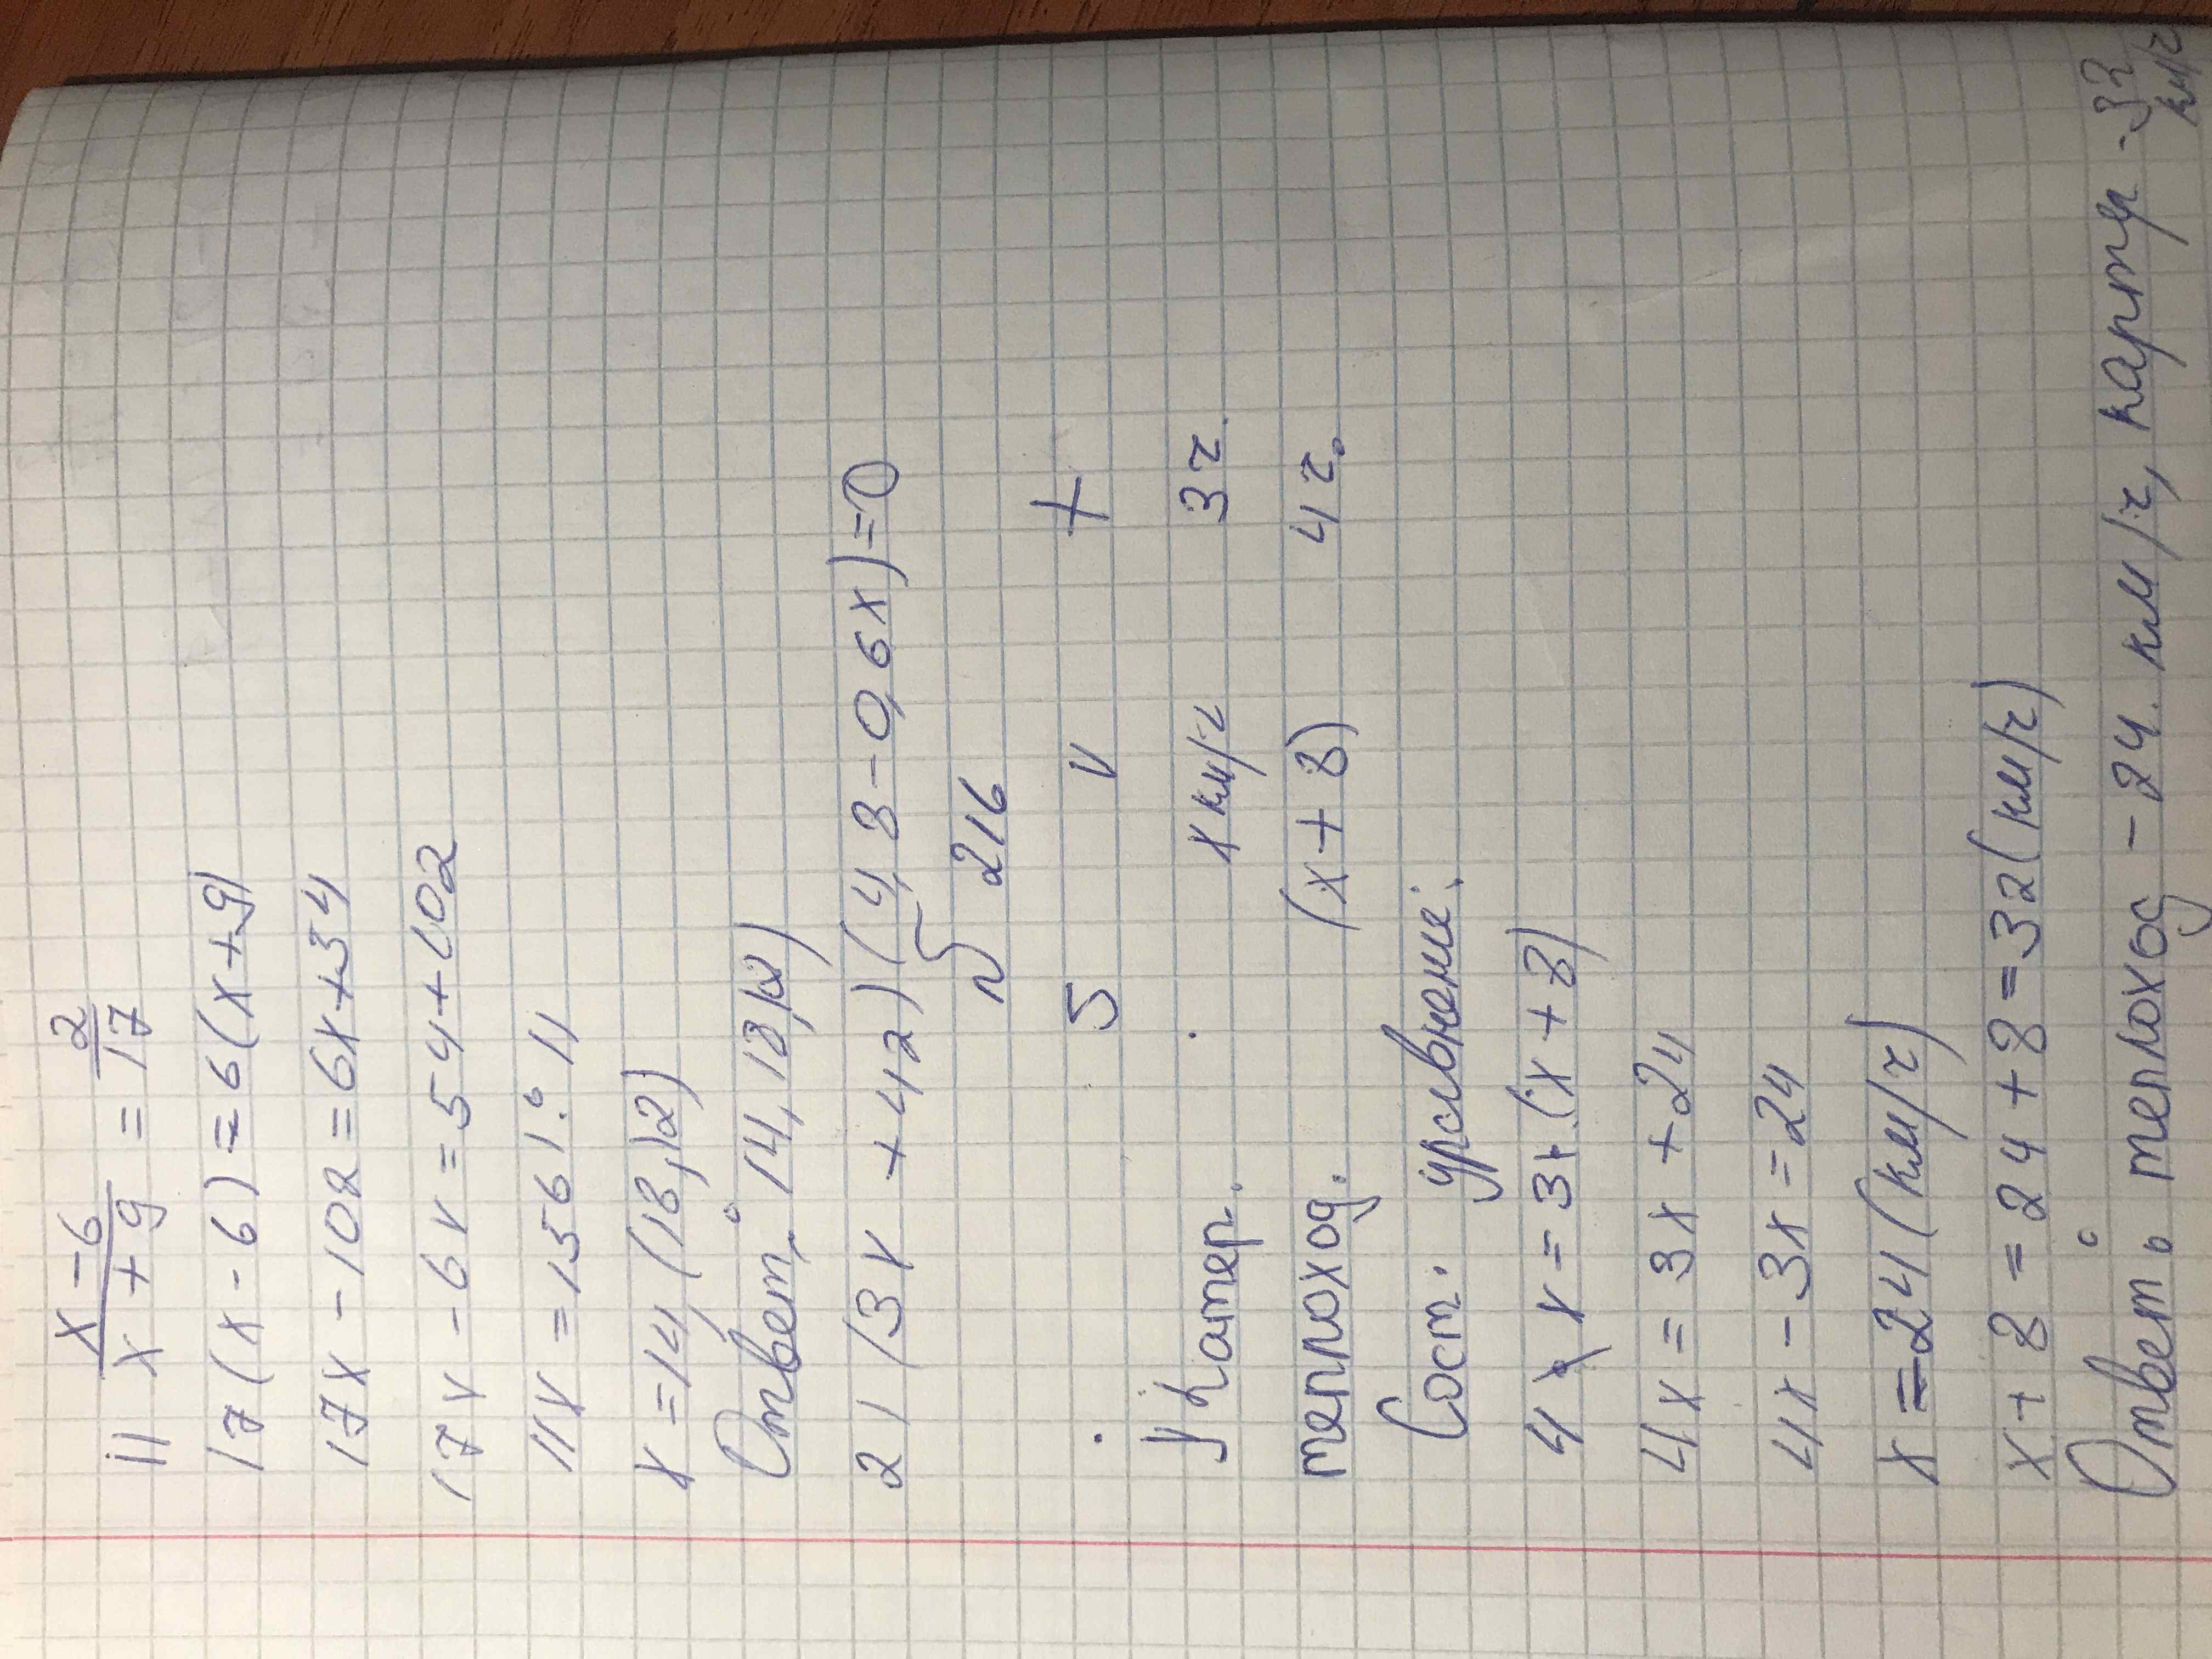 1) x-6/x+9 = 2/17
17(x-6)=6(x+9)
17x-102=6x+34
17x-6x=54+102
11x=1561:11
x=14,(18,12)
Ответ: 14,18,12)
2) (3x+42)(4,8-0,6x)=0
№216
S V t
Катер. x км/ч 3ч.
теплоход. (x+8) 4ч.
Сост. уравнение:
4x=3(x+8)
4x=3x+24
4x-3x=24
x=24(км/ч)
x+8=24+8=32(км/ч)
Ответ: теплоход-24.км/ч, катер-32 км/ч